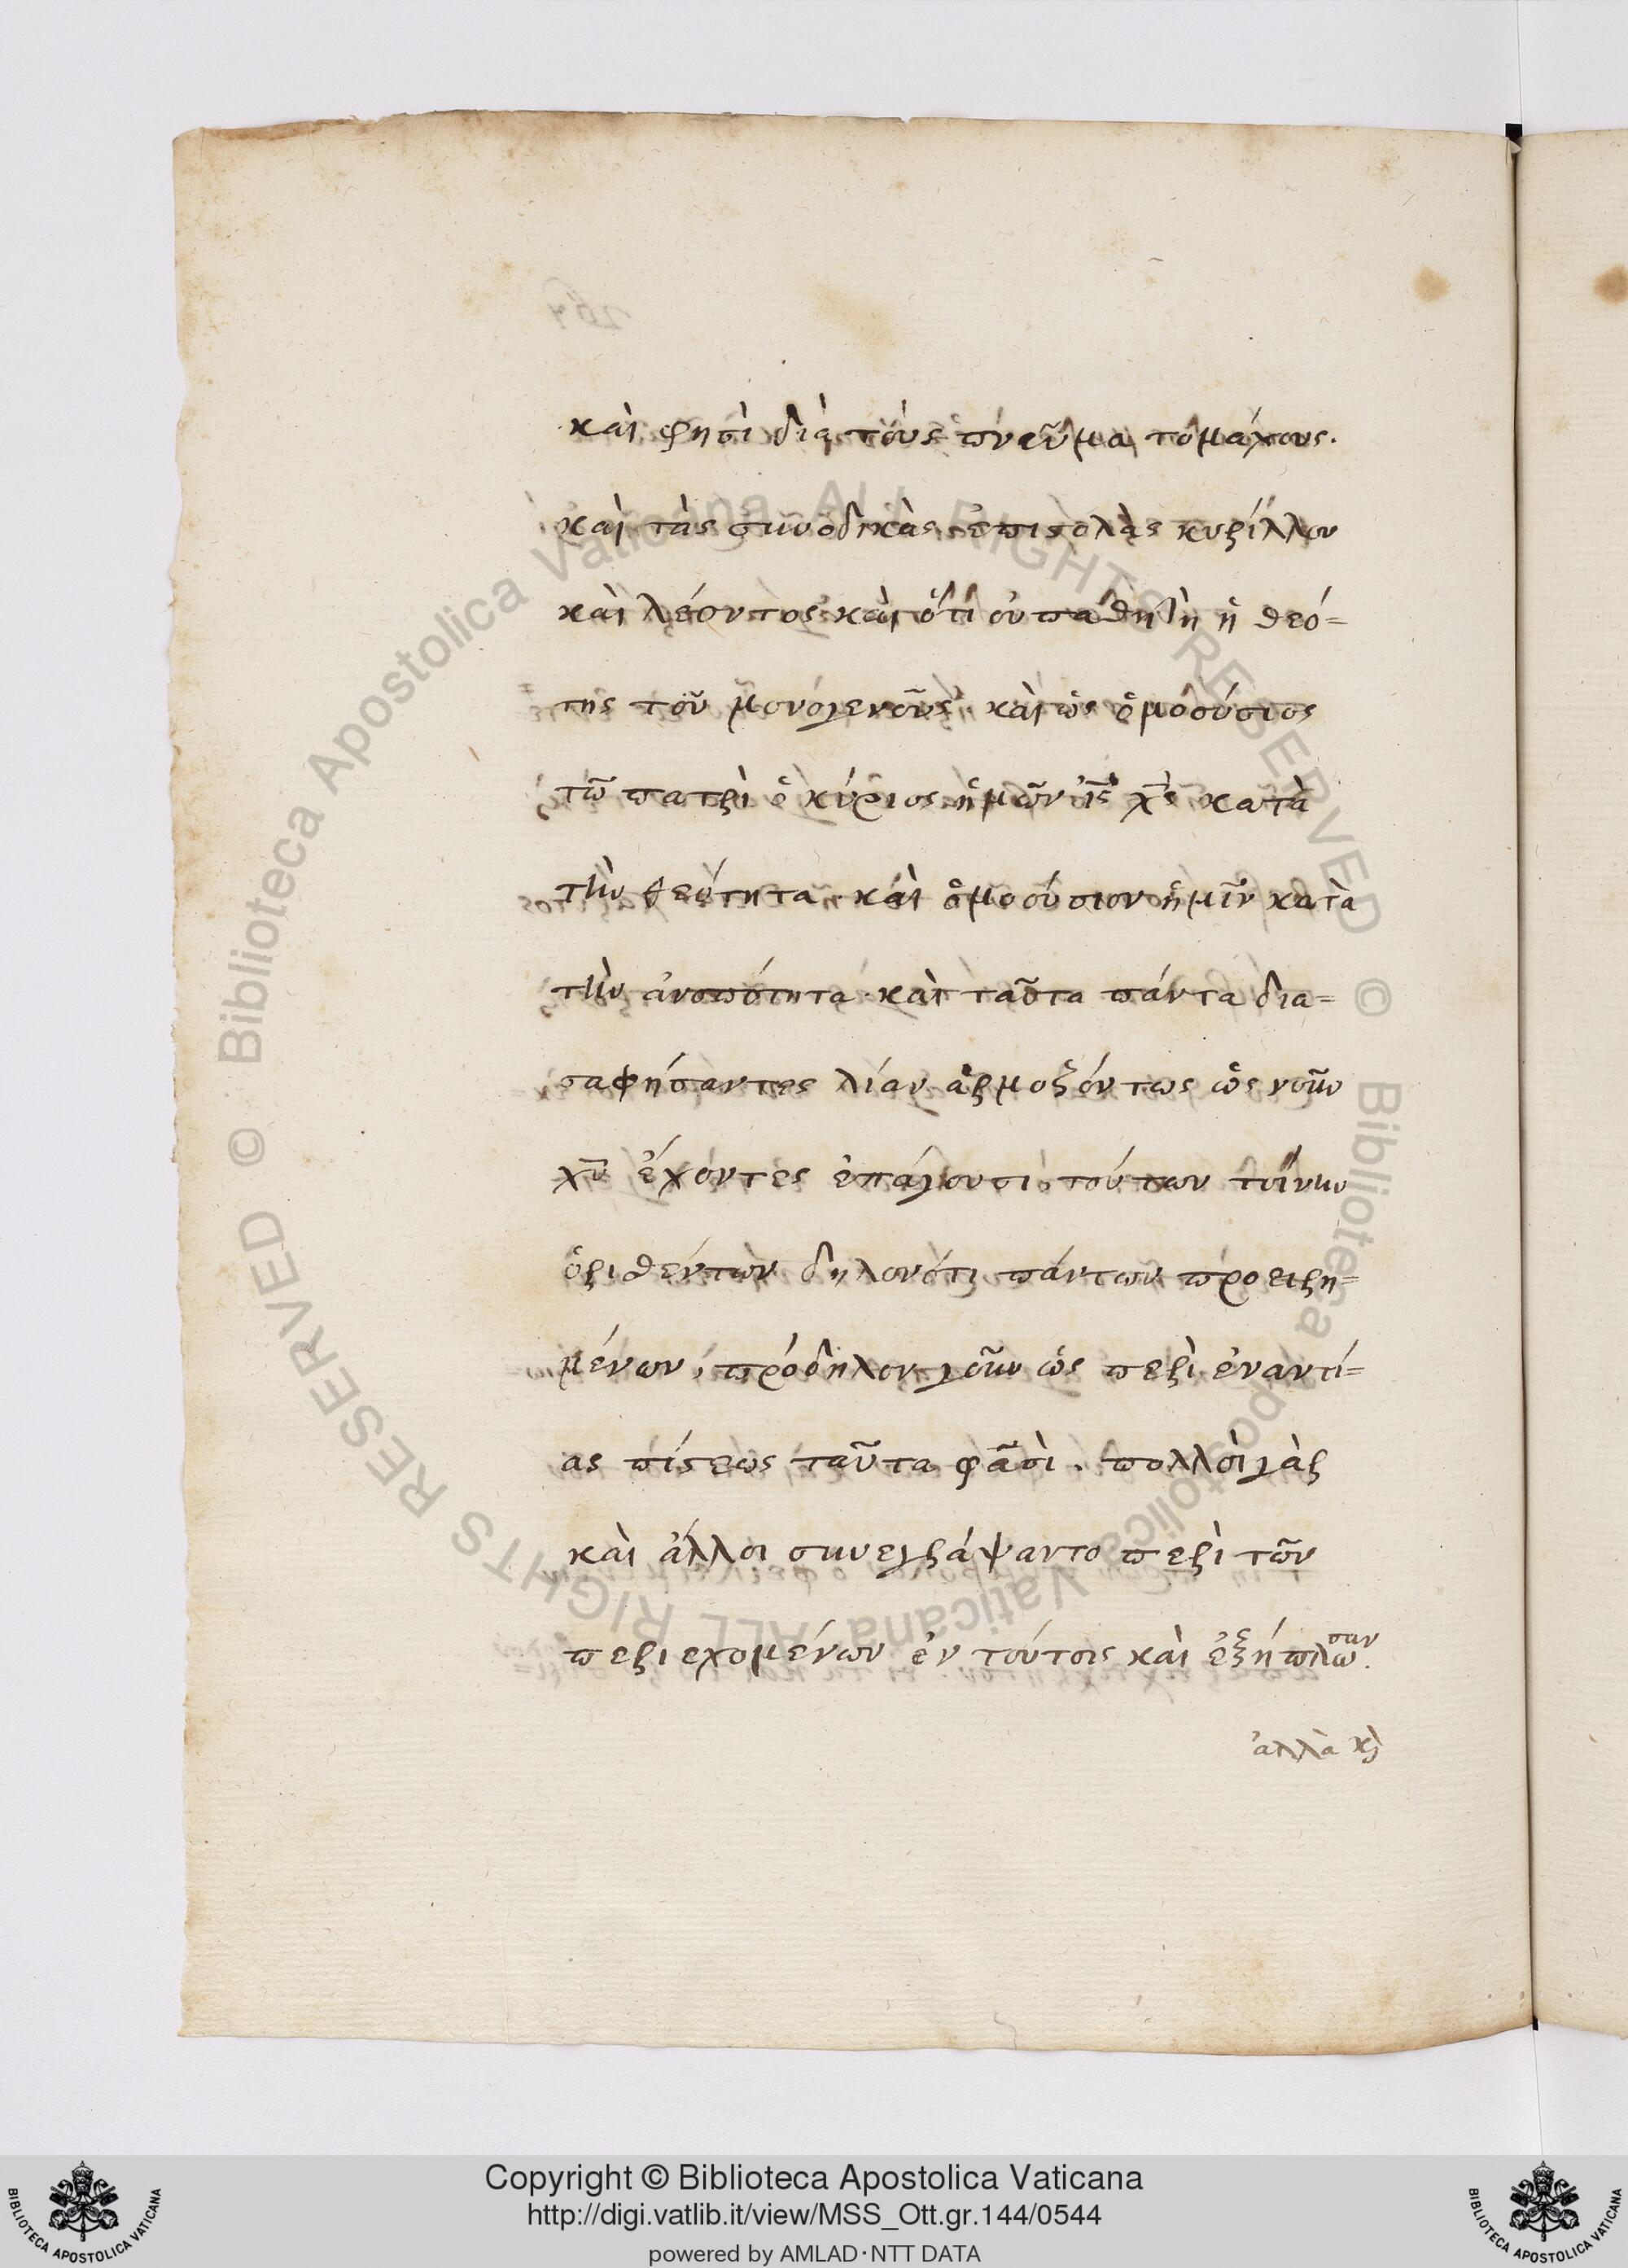 καὶ φησὶ διὰ τοὺς πνεῦμα τομάχους.
καὶ τὰς συνοδικὰς ἐπιστολὰς κυρίλλου
καὶ λέοντος καὶ ὅτι οὐ παθητὴ ἡ θεό=
της τοῦ μονογενοῦς. καὶ ὡς ὁμοούσιος
τῶ πατρὶ ὁ κύριος ἡμῶν ἰς χς κατὰ
τὴν θεότητα. καὶ ὁμοούσιον ἡμῖν κατὰ
τὴν ἀνοπότητα. καὶ ταῦτα πάντα δια=
σαφήσαντες λίαν ἁρμοζόντως ὡς νοῦν
χυ ἔχοντες ἐπάγουσι. τούτων τοίνυν
ὁριθέντων δηλονότι πάντων προειρη=
μένων, πρόδηλον γοῦν ὡς περὶ ἐναντί=
ας πίστεως ταῦτα φᾶσὶ. πολλοὶ γὰρ
καὶ ἄλλοι συνεγράψαντο περὶ τῶν
περιεχομένων ἐν τούτοις καὶ ἐξήπλωσαν.
ἀλλὰ κὶ
Copyright © Biblioteca Apostolica Vaticana
http://digi.vatlib.it/view/MSS_Ott.gr.144/0544
powered by AMLAD·NTT DATA
BIBLIOTECA APOSTOLICA VATICANA
BIBLIOTECA APOSTOLICA VATICANA
© Biblioteca Apostolica Vaticana ALL RIGHTS RESERVED
© Biblioteca Apostolica Vaticana ALL RIGHTS RESERVED